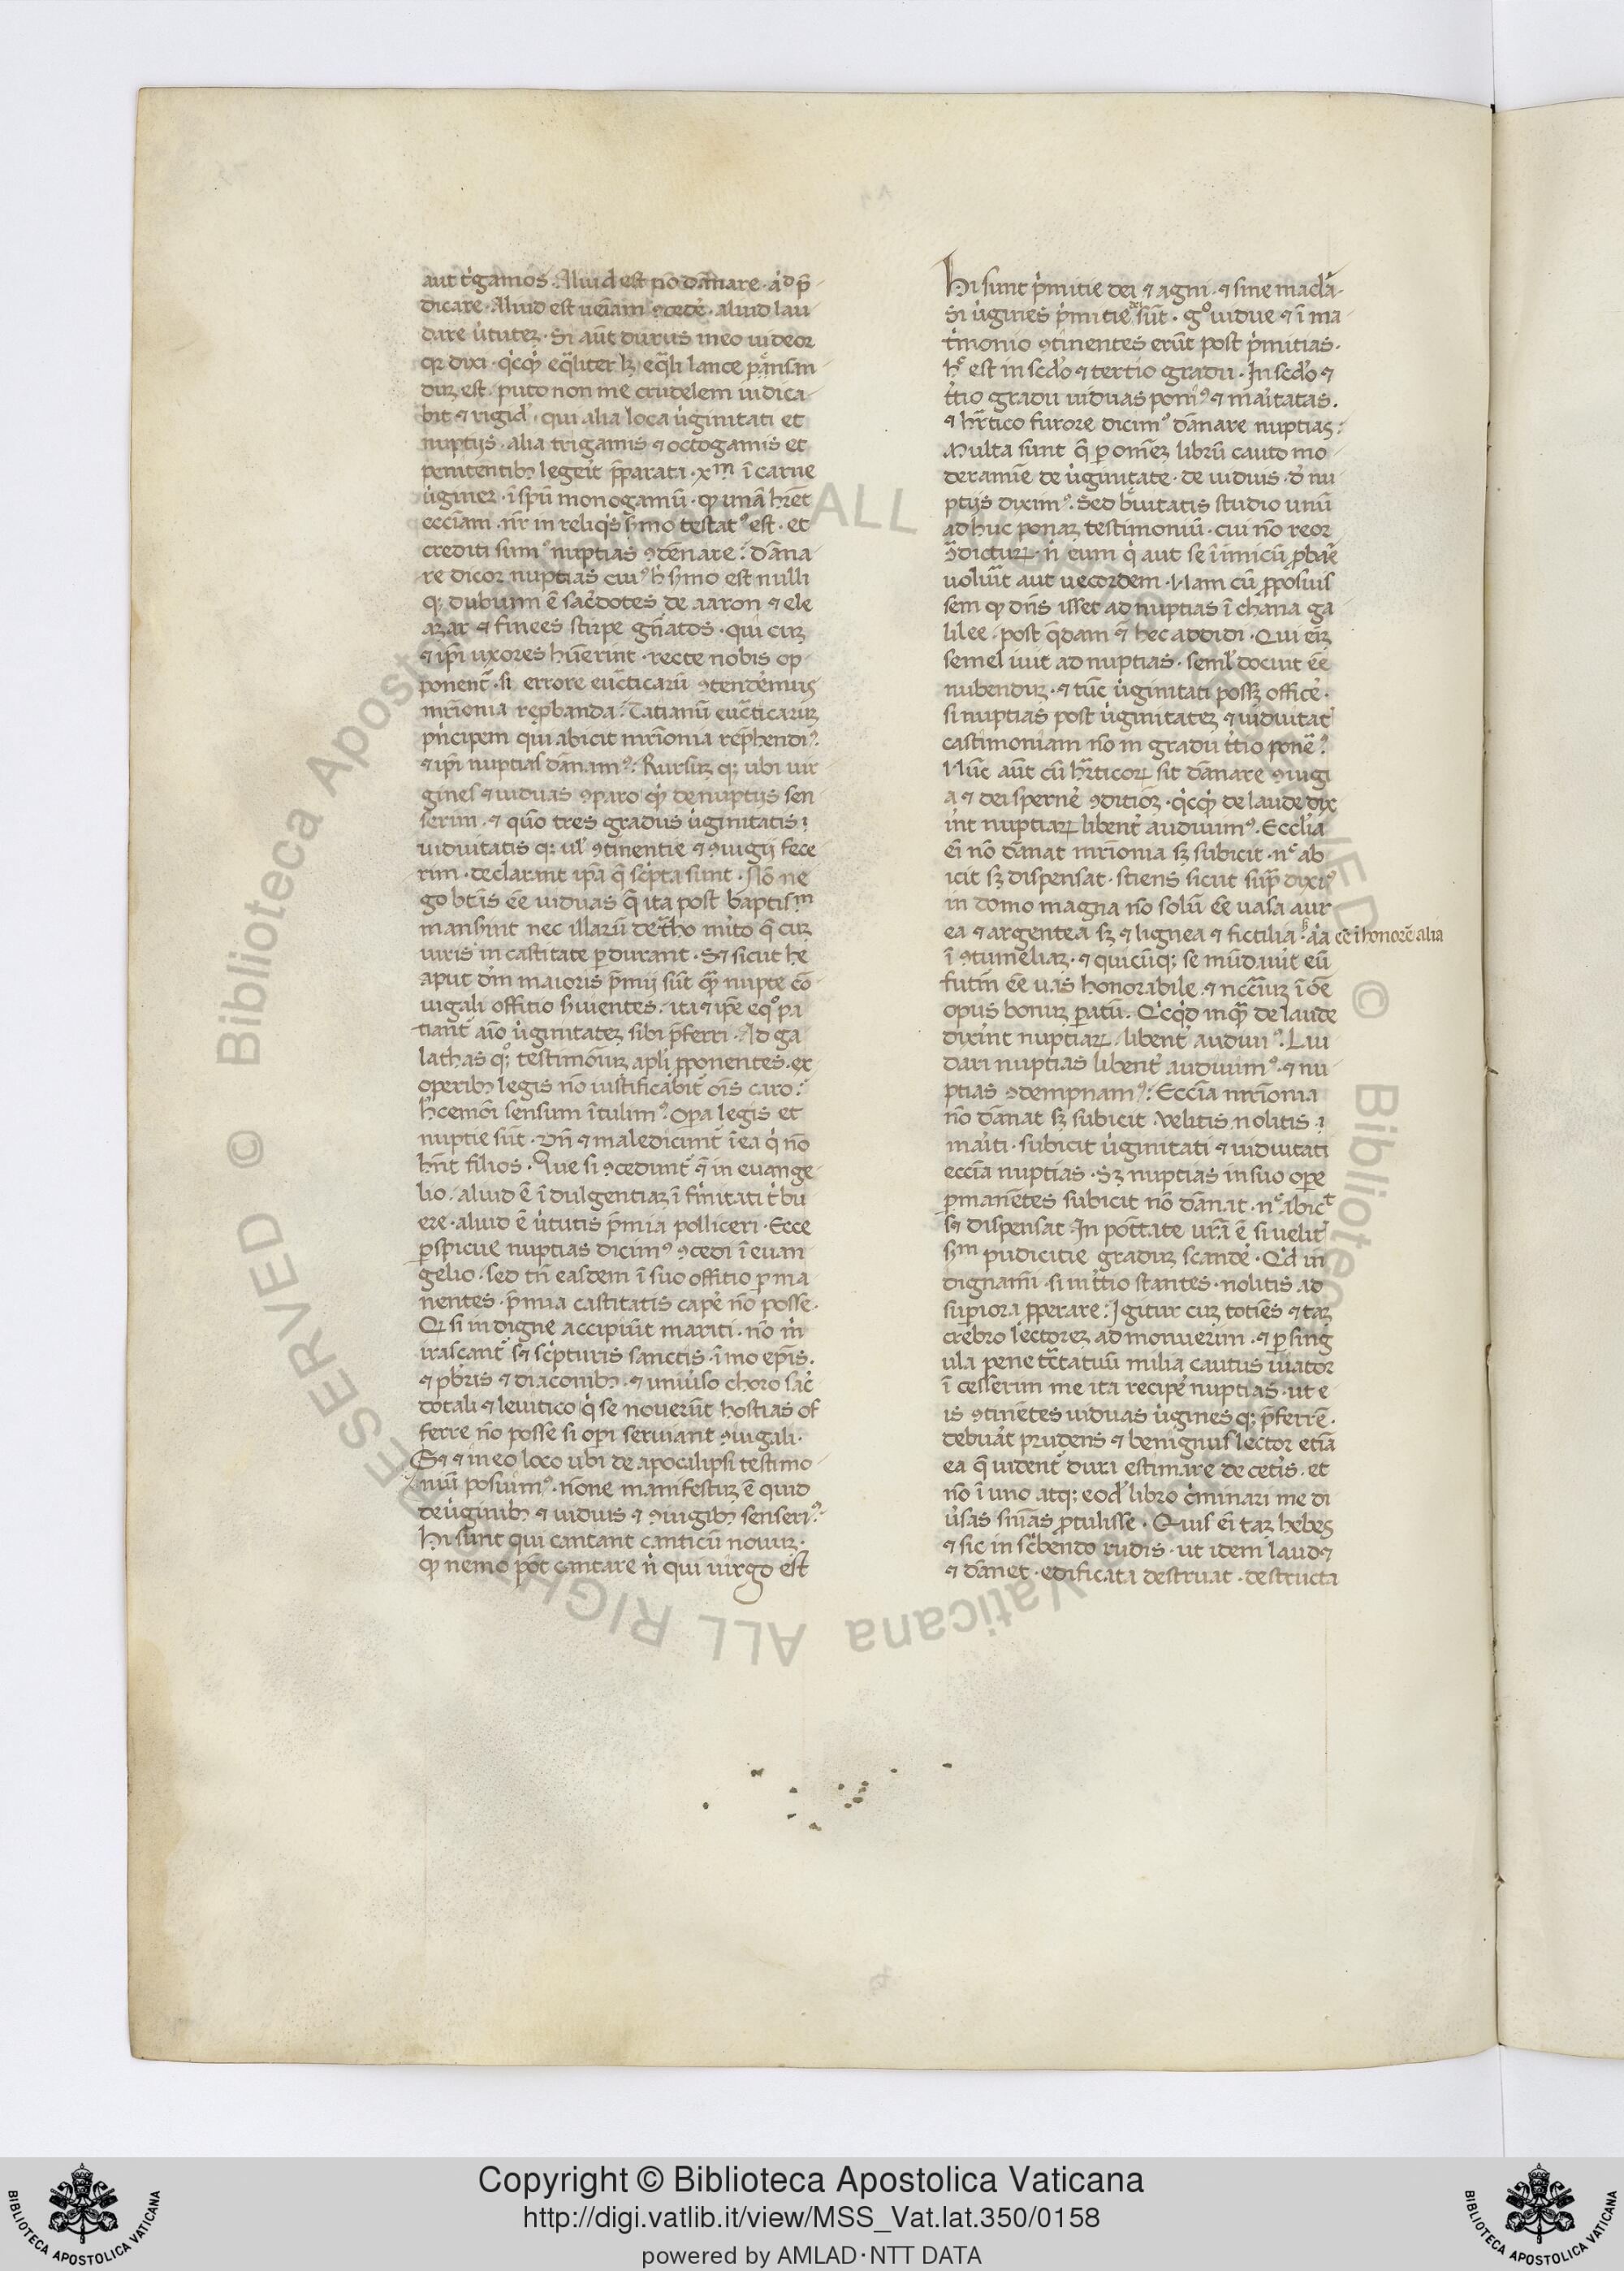 aut t'gamos. Aliud est nō dānare. a'd p̄
dicare. Aliud est ueīam ꝯcedē. aliud lau
dare ùtutez. Si aūt durus meo uideor
qꝛ dixi. q'cq'd eq̄liter hz eq̄li lance
duz est. puto non me crudelem iudica
bit ⁊ rigid'. qui alia loca ùginitati et
nuptijs. alia trigamis ⁊ octogamis et
penitentibꝫ legeīt p̄parati. xᵐ ī carne
ùginez. ī spū monogamū. ꝙ unā hr̄et
ecc̄iam. nr̄ in reliq's s'mo testat⁹ est. et
crediti sum⁹ nuptias ꝯdēnare? Dāna
re dicor nuptias cui⁹ h' s'mo est nulli
qꝫ dubium ē sac̄dotes de aaron ⁊ ele
azar ⁊ finees stirpe gn̄atos. qui cuꝫ
⁊ ip̄i uxores hūerint. recte nobis op
ponent̄. si errore euc̄ticarū ꝯtendēmus
mr̄ionia rep̱banda. Tatianū euc̄ticaruꝫ
p'ncipem qui abicit mr̄ionia rep̄hendi⁹.
⁊ ip̄i nuptias dānam⁹? Rursuꝫ qꝫ ubi uir
gines ⁊ uiduas ꝯparo q'd de nuptijs sen
serim. ⁊ quō tres gradus ùginitatis.
uiduitatis qꝫ ul' ꝯtinentie ⁊ ꝯiugij fece
rim. declarant ip̄a q̄ sc'pta sunt. Nō ne
go btās ēe uiduas q̄ ita post baptisᵐ
manśint nec illarū det̄ho mīto q̄ cuꝫ
uiris in castitate ꝑdurant. S⁊ sicut he
aput dm̄ maioris p̄mij sūt q̄ꝫ nupte cō
iugali offitio s'uientes. ita ⁊ ip̄e eq⁰ pa
tiant̄ aīo ùginitatez sibi p̄ferri. Ad ga
lathas qꝫ testimōiuꝫ apl'i ꝓponentes. ex
operibꝫ legis nō iustificabit̄ oīs caro.
h'cemōi sensum ītulim⁹. Oꝑa legis et
nuptie sūt. Vn̄ ⁊ maledicunt̄ ī ea q' nō
hn̄t filios. Que si ꝯcedunt̄ ēt in euange
lio. aliud ē īdulgentiaꝫ īfīrmitati t'bu
ere. aliud ē ùtutis p̄mia polliceri. Ecce
ꝑspicue nuptias dicim⁹ ꝯcedi ī euan
gelio. sed tn̄ easdem ī suo offitio ꝑma
nentes. p̄mia castitatis capē nō posse.
Q⁊ si indigne accipiūt mariti. nō m̄
irascant̄ s⁊ sc'pturis sanctis. īmo ep̄is.
⁊ pb̄ris ⁊ diaconibꝫ. ⁊ uniùso choro sac̄
dotali ⁊ leuitico q' se nouerūt hostias of
ferre nō posse si opi seruiant ꝯiugali.
S⁊ ⁊ in eo loco ubi de apocalipsi testimo
niū posuim⁹. nōne manifestuꝫ ē quid
de ùginibꝫ ⁊ uiduis ⁊ ꝯiugibꝫ senseri⁹?
Hi sunt qui cantant canticū nouuꝫ.
ꝙ nemo pōt cantare n̄ qui uirgo est
Hi sunt p'mitie dei ⁊ agni. ⁊ sine macl'a.
Si ùgines p'mitie dei sūt. g⁰ uidue ⁊ ī ma
t'monio ꝯtinentes erūt post p'mitias.
h̄ᶜ est in scd'o ⁊ tertio gradu. In scd'o ⁊
t'tio gradu uiduas ponim⁹ ⁊ maritatas.
⁊ hr̄tico furore dicim⁹ dānare nuptias?
Multa sunt q̄ ꝑ omēꝫ librū cauto mo
deramīe de ùginitate. de uiduis. d' nu
ptijs diximꝰ. Sed b'uitatis studio unū
adhuc ponaꝫ testimoniū. cui nō reor
ꝯ̄dicturū. n̄ eum q' aut se inimicū ꝓbae
uoluīt aut uecordem. Nam cū ꝓposuis
sem ꝙ dn̄s isset ad nuptias ī chana ga
lilee. post q̄dam ēt hec addidi. Qui eīꝫ
semel iuit ad nuptias. seml' docuit ēe
nubenduꝫ. ⁊ tūc ùginitati possꝫ officē.
si nuptias post ùginitatez ⁊ uiduitat'
castimoniam nō in gradu t'tio ponē⁹.
Nūc aūt cū hr̄ticorꝫ sit dānare ꝯiugi
a ⁊ dei spernē ꝯditiōꝫ. q'cq'd de laude dix
int nuptiarꝫ libent' audiuim⁹. Eccl'ia
eī nō dānat mr̄ionia sꝫ subicit. nᶜ ab
icit sꝫ dispensat. sciens sicut sup̄ dixi⁹
in domo magna nō solū ēe uasa aur
ea ⁊ argentea sꝫ ⁊ lignea ⁊ fictilia. a'a ēe ī honorē alia
ī ꝯtumeliaꝫ. ⁊ quicūqꝫ se mūdauit eū
futm̄ ēe uas honorabile. ⁊ ncc̄iuꝫ ī ōe
opus bonuꝫ ꝑatū. Q'cq'd inq̄ꝫ de laude
dix'int nuptiarꝫ. libent' audiui⁹. Lau
dari nuptias libent' audiuim⁹. ⁊ nu
ptias ꝯdempnam⁹? Ecc̄ia mr̄ionia
nō dānat sꝫ subicit. Velitis nolitis.
mariti. subicit ùginitati ⁊ uiduitati
ecc̄ia nuptias. Sꝫ nuptias in suo oꝑe
ꝑmanētes subicit nō dānat. nᶜ abicᵗ
s⁊ dispensat. In pot̄tate ur̄a ē si uelit'
sᵐ pudicitie graduꝫ scandē. Q'd in
dignami. si in t'tio stantes. nolitis ad
superiora ꝓperare? Igitur cuꝫ totiēs ⁊ taꝫ
crebro lectorez admonuerim. ⁊ ꝑ sing
ula pene tc̄tatuū milia cautus uiator
ī cesserim me ita recipē nuptias. ut e
is ꝯtinētes uiduas ùgines qꝫ p̄ferrē.
debuāt prudens ⁊ benignus lector etiā
ea q̄ uident̄ duri estimare de cet̄is. et
nō ī uno atqꝫ eod' libro c'minari me di
ùsas sn̄ias ꝓtulisse. Quis eī taꝫ hebes
⁊ sic in sc'bendo rudis. ut idem laud⁊
⁊ dānet. edificata destruat. destructa
Copyright © Biblioteca Apostolica Vaticana
http://digi.vatlib.it/view/MSS_Vat.lat.350/0158
powered by AMLAD·NTT DATA
BIBLIOTECA APOSTOLICA VATICANA
BIBLIOTECA APOSTOLICA VATICANA
© Biblioteca Apostolica Vaticana ALL RIGHTS RESERVED © Biblioteca Apostolica Vaticana ALL RIGHTS RESERVED